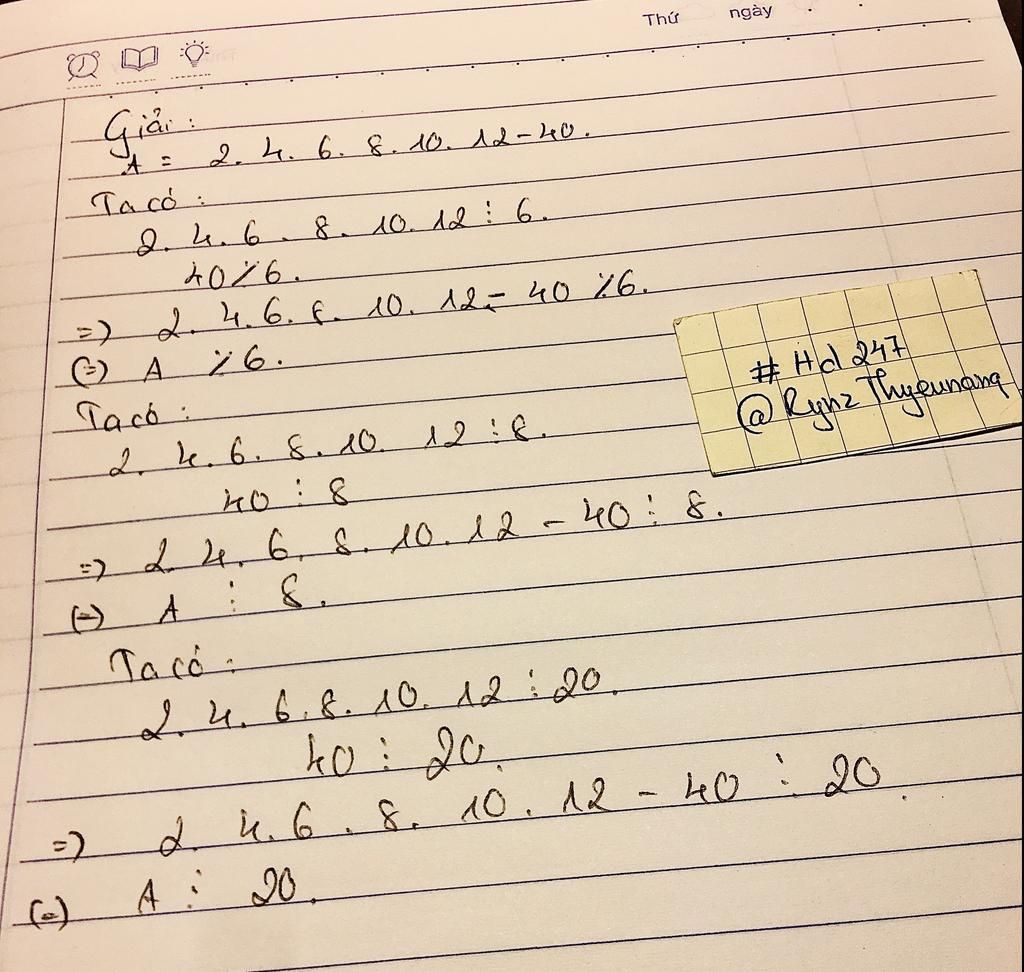 Thứ ngày
Giải:
A = 2. 4. 6. 8. 10. 12 - 40.
Ta có:
2. 4. 6. 8. 10. 12 ⋮ 6.
40 ⋮̸ 6.
=> 2. 4. 6. 8. 10. 12 - 40 ⋮̸ 6.
(=) A ⋮̸ 6.
Ta có:
2. 4. 6. 8. 10. 12 ⋮ 8.
40 ⋮ 8
=> 2. 4. 6. 8. 10. 12 - 40 ⋮ 8.
(=) A ⋮ 8.
Ta có:
2. 4. 6. 8. 10. 12 ⋮ 20.
40 ⋮ 20.
=> 2. 4. 6. 8. 10. 12 - 40 ⋮ 20.
(=) A ⋮ 20.
# Hd 247
@ Rynz Thyeunang